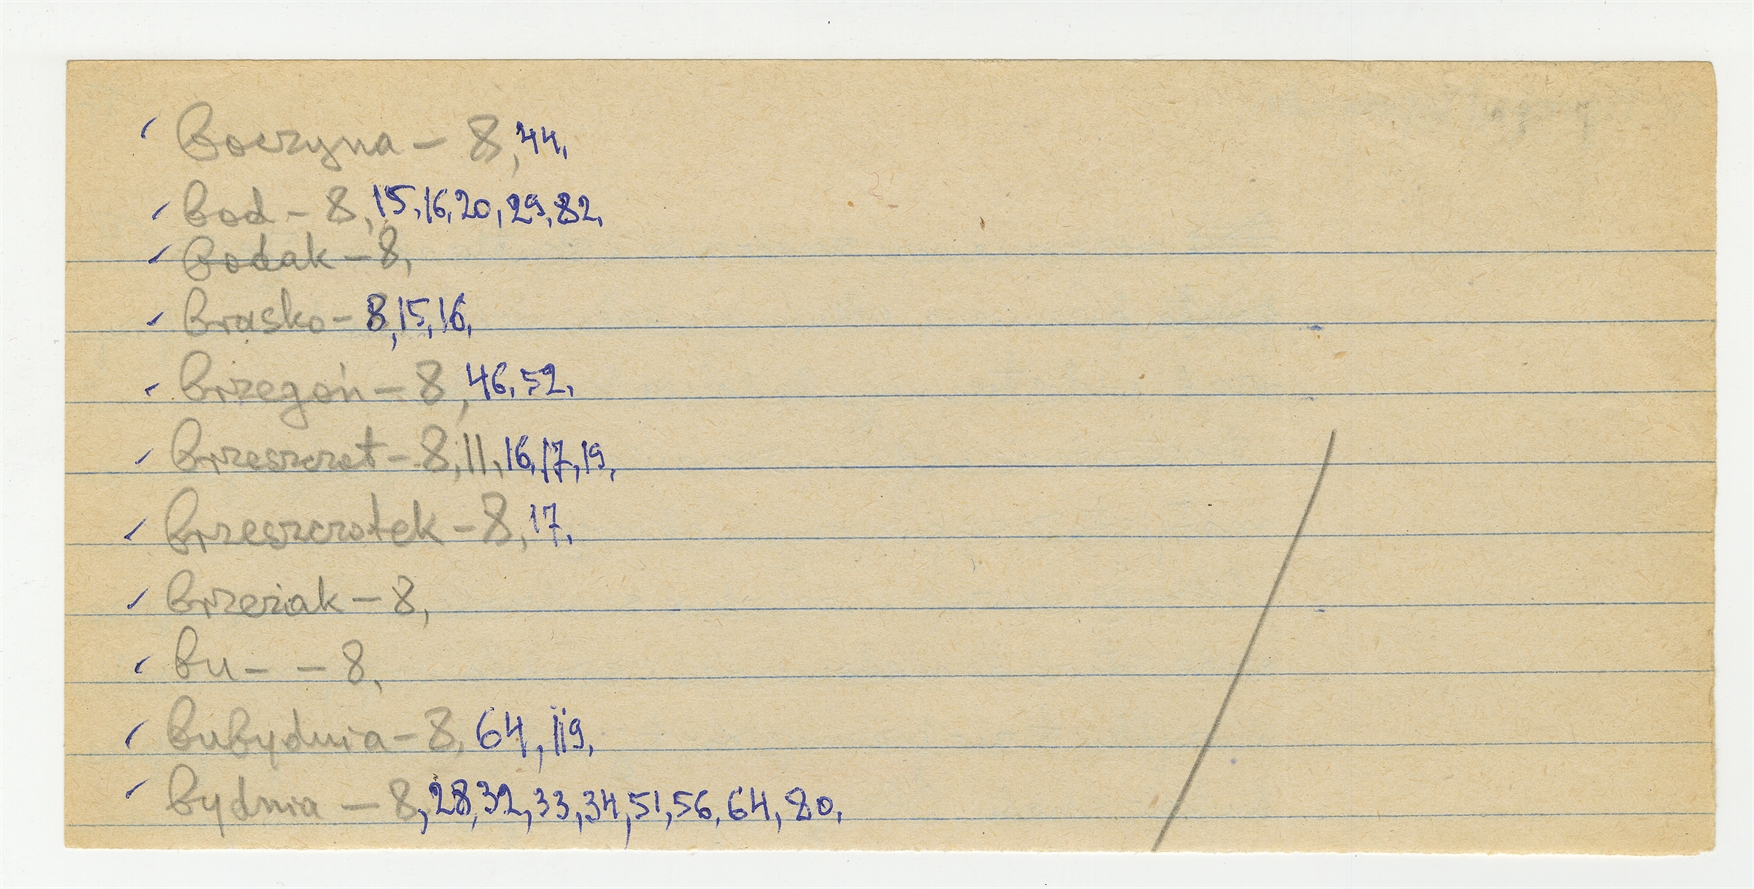 Boczyna – 8, 44,
Bod – 8, 15, 16, 20, 29, 82,
Bodak – 8,
Brasko – 8, 15, 16,
Brzegoń – 8, 46, 52,
Brzeszczot – 8, 11, 16, 17, 19,
Brzeszczotek – 8, 17,
Brzeziak – 8,
Bu – – 8,
Bubydnia – 8, 64, 119,
Bydnia – 8, 28, 32, 33, 34, 51, 56, 64, 80,